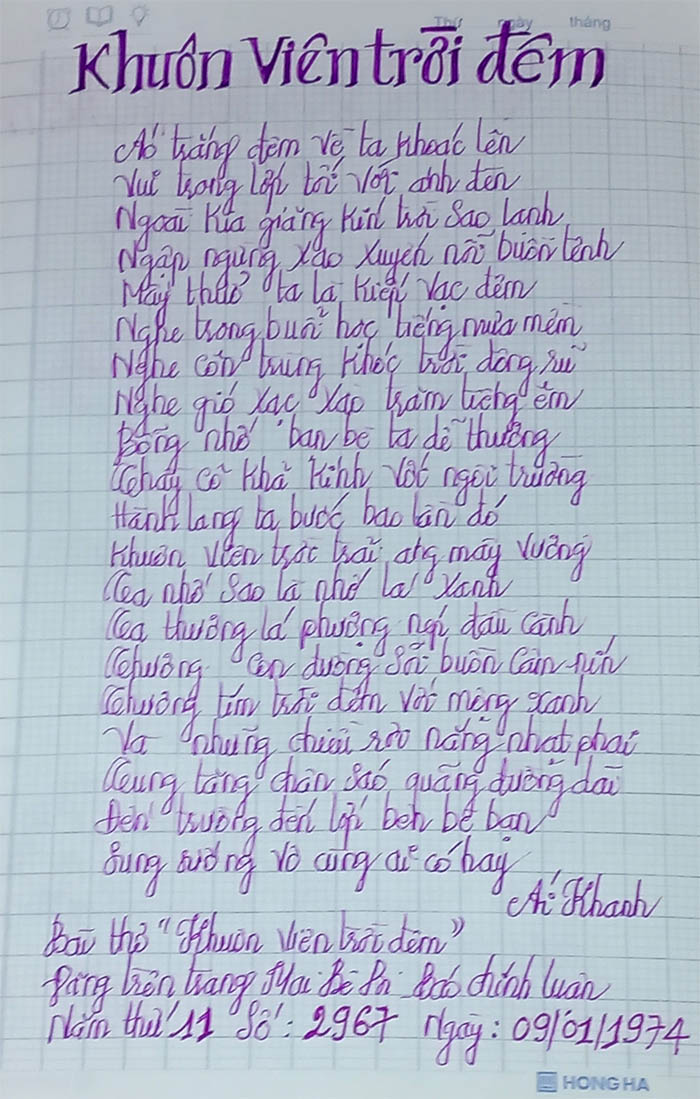 Thứ ngày tháng
Khuôn Viên trời đêm
Áo trắng đêm về ta khoác lên
Vui trong lớp tối với ánh đèn
Ngoài kia giăng kín trời sao lạnh
Ngập ngừng xao xuyến nỗi buồn tênh
Mấy thuở ta là kiếp vạc đêm
Nghe trong buổi học tiếng mưa mềm
Nghe côn trùng khóc trời đông rũ
Nghe gió xạc xào trăm tiếng êm
Bỗng nhớ bạn bè ta dễ thương
Thầy cô khả kính với ngôi trường
Hành lang ta bước bao lần đó
Khuôn viên trắc trải ang mây vương
Ta nhớ sao là nhớ lá xanh
Ta thương lá phượng ngủ đầu cành
Thương con đường sỏi buồn câm nín
Thương tím trời đêm với mộng xanh
Và những chiều rơi nắng nhạt phai
Tung tăng chân sáo quãng đường dài
Đến trường đến lớp bên bè bạn
Sung sướng vô cùng ai có hay
Ái Khanh
Bài thơ "Khuôn viên trời đêm"
Đăng trên trang Mai Bê Bi Báo chính luận
Năm thứ 11 Số: 2967 Ngày: 09/01/1974
HONG HA